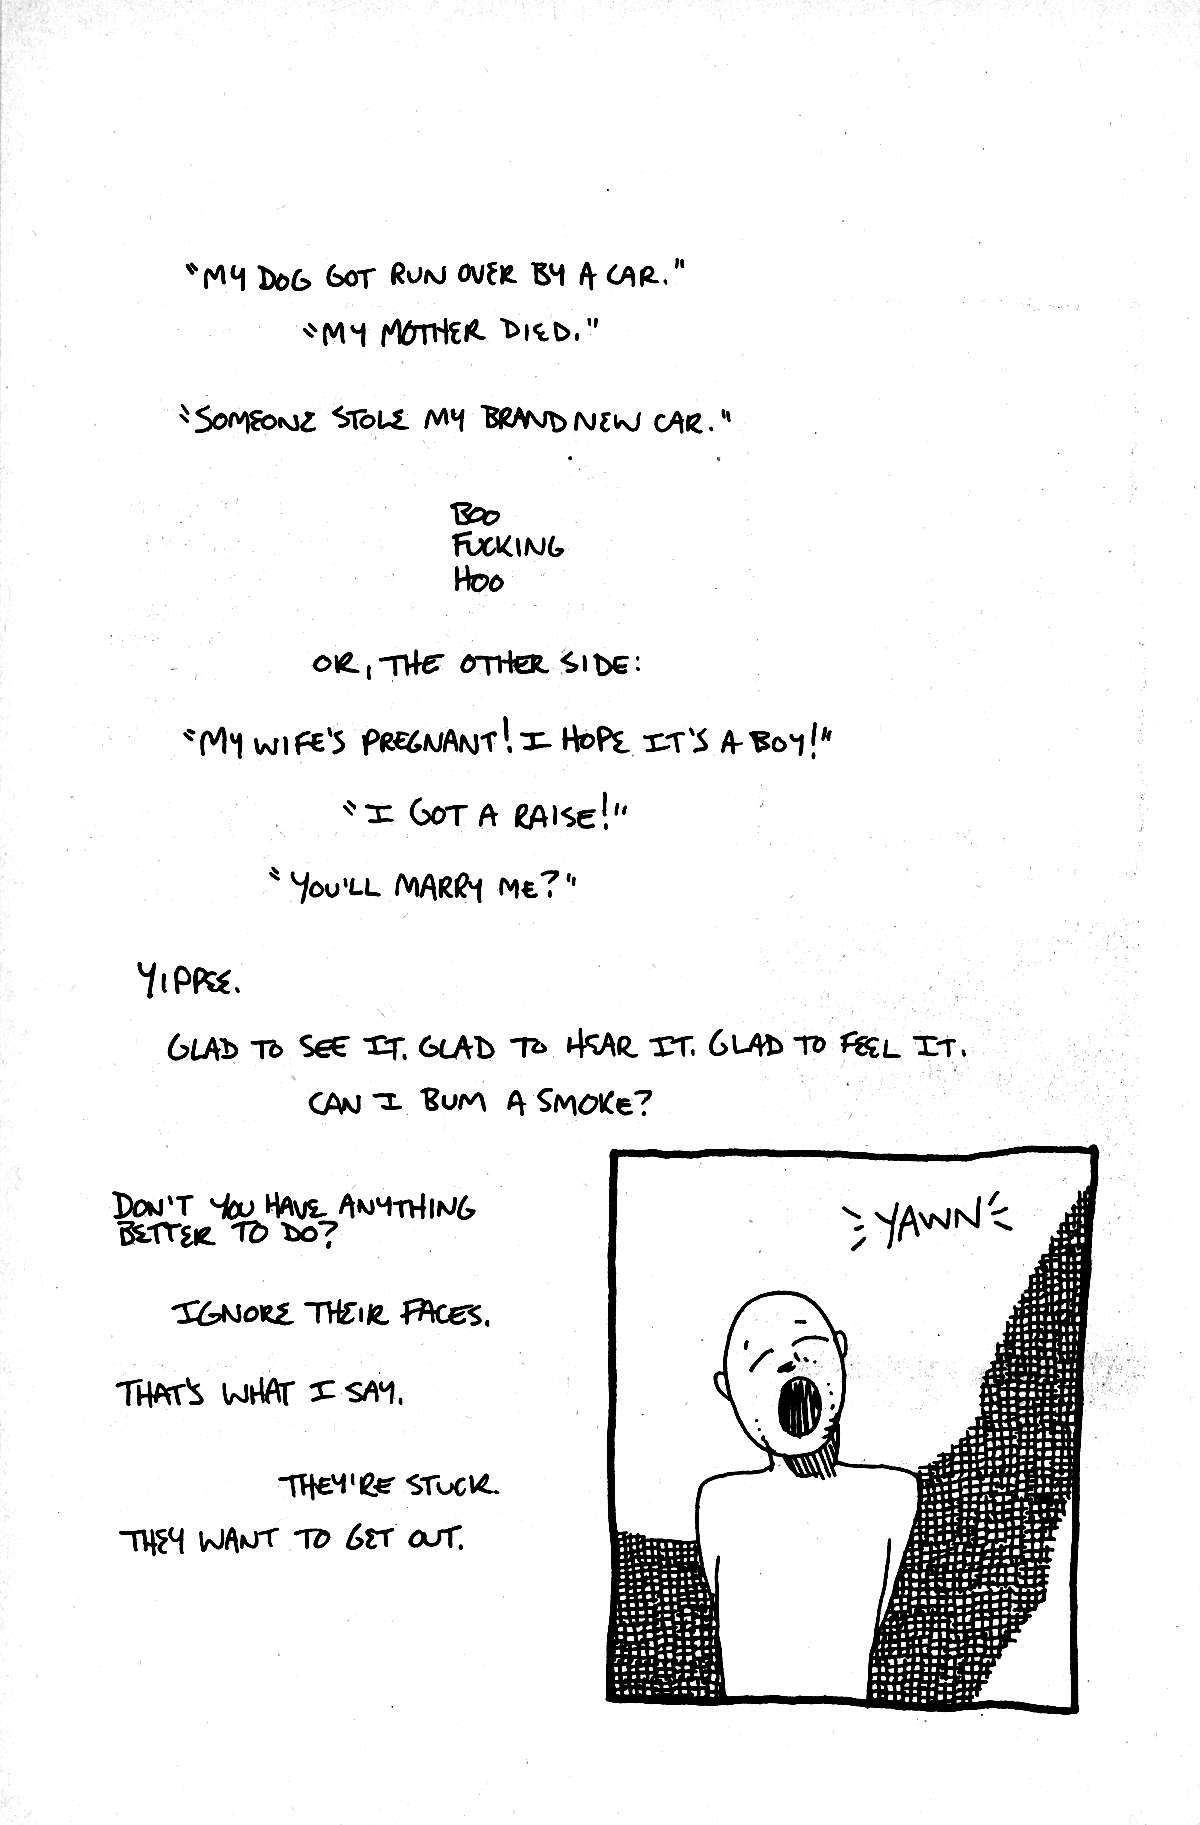 "MY DOG GOT RUN OVER BY A CAR."
"MY MOTHER DIED."
"SOMEONE STOLE MY BRAND NEW CAR."
BOO
FUCKING
HOO
OR, THE OTHER SIDE:
"MY WIFE'S PREGNANT! I HOPE IT'S A BOY!"
"I GOT A RAISE!"
"YOU'LL MARRY ME?"
YIPPEE.
GLAD TO SEE IT. GLAD TO HEAR IT. GLAD TO FEEL IT.
CAN I BUM A SMOKE?
DON'T YOU HAVE ANYTHING
BETTER TO DO?
IGNORE THEIR FACES.
THAT'S WHAT I SAY.
THEY'RE STUCK.
THEY WANT TO GET OUT.
YAWN